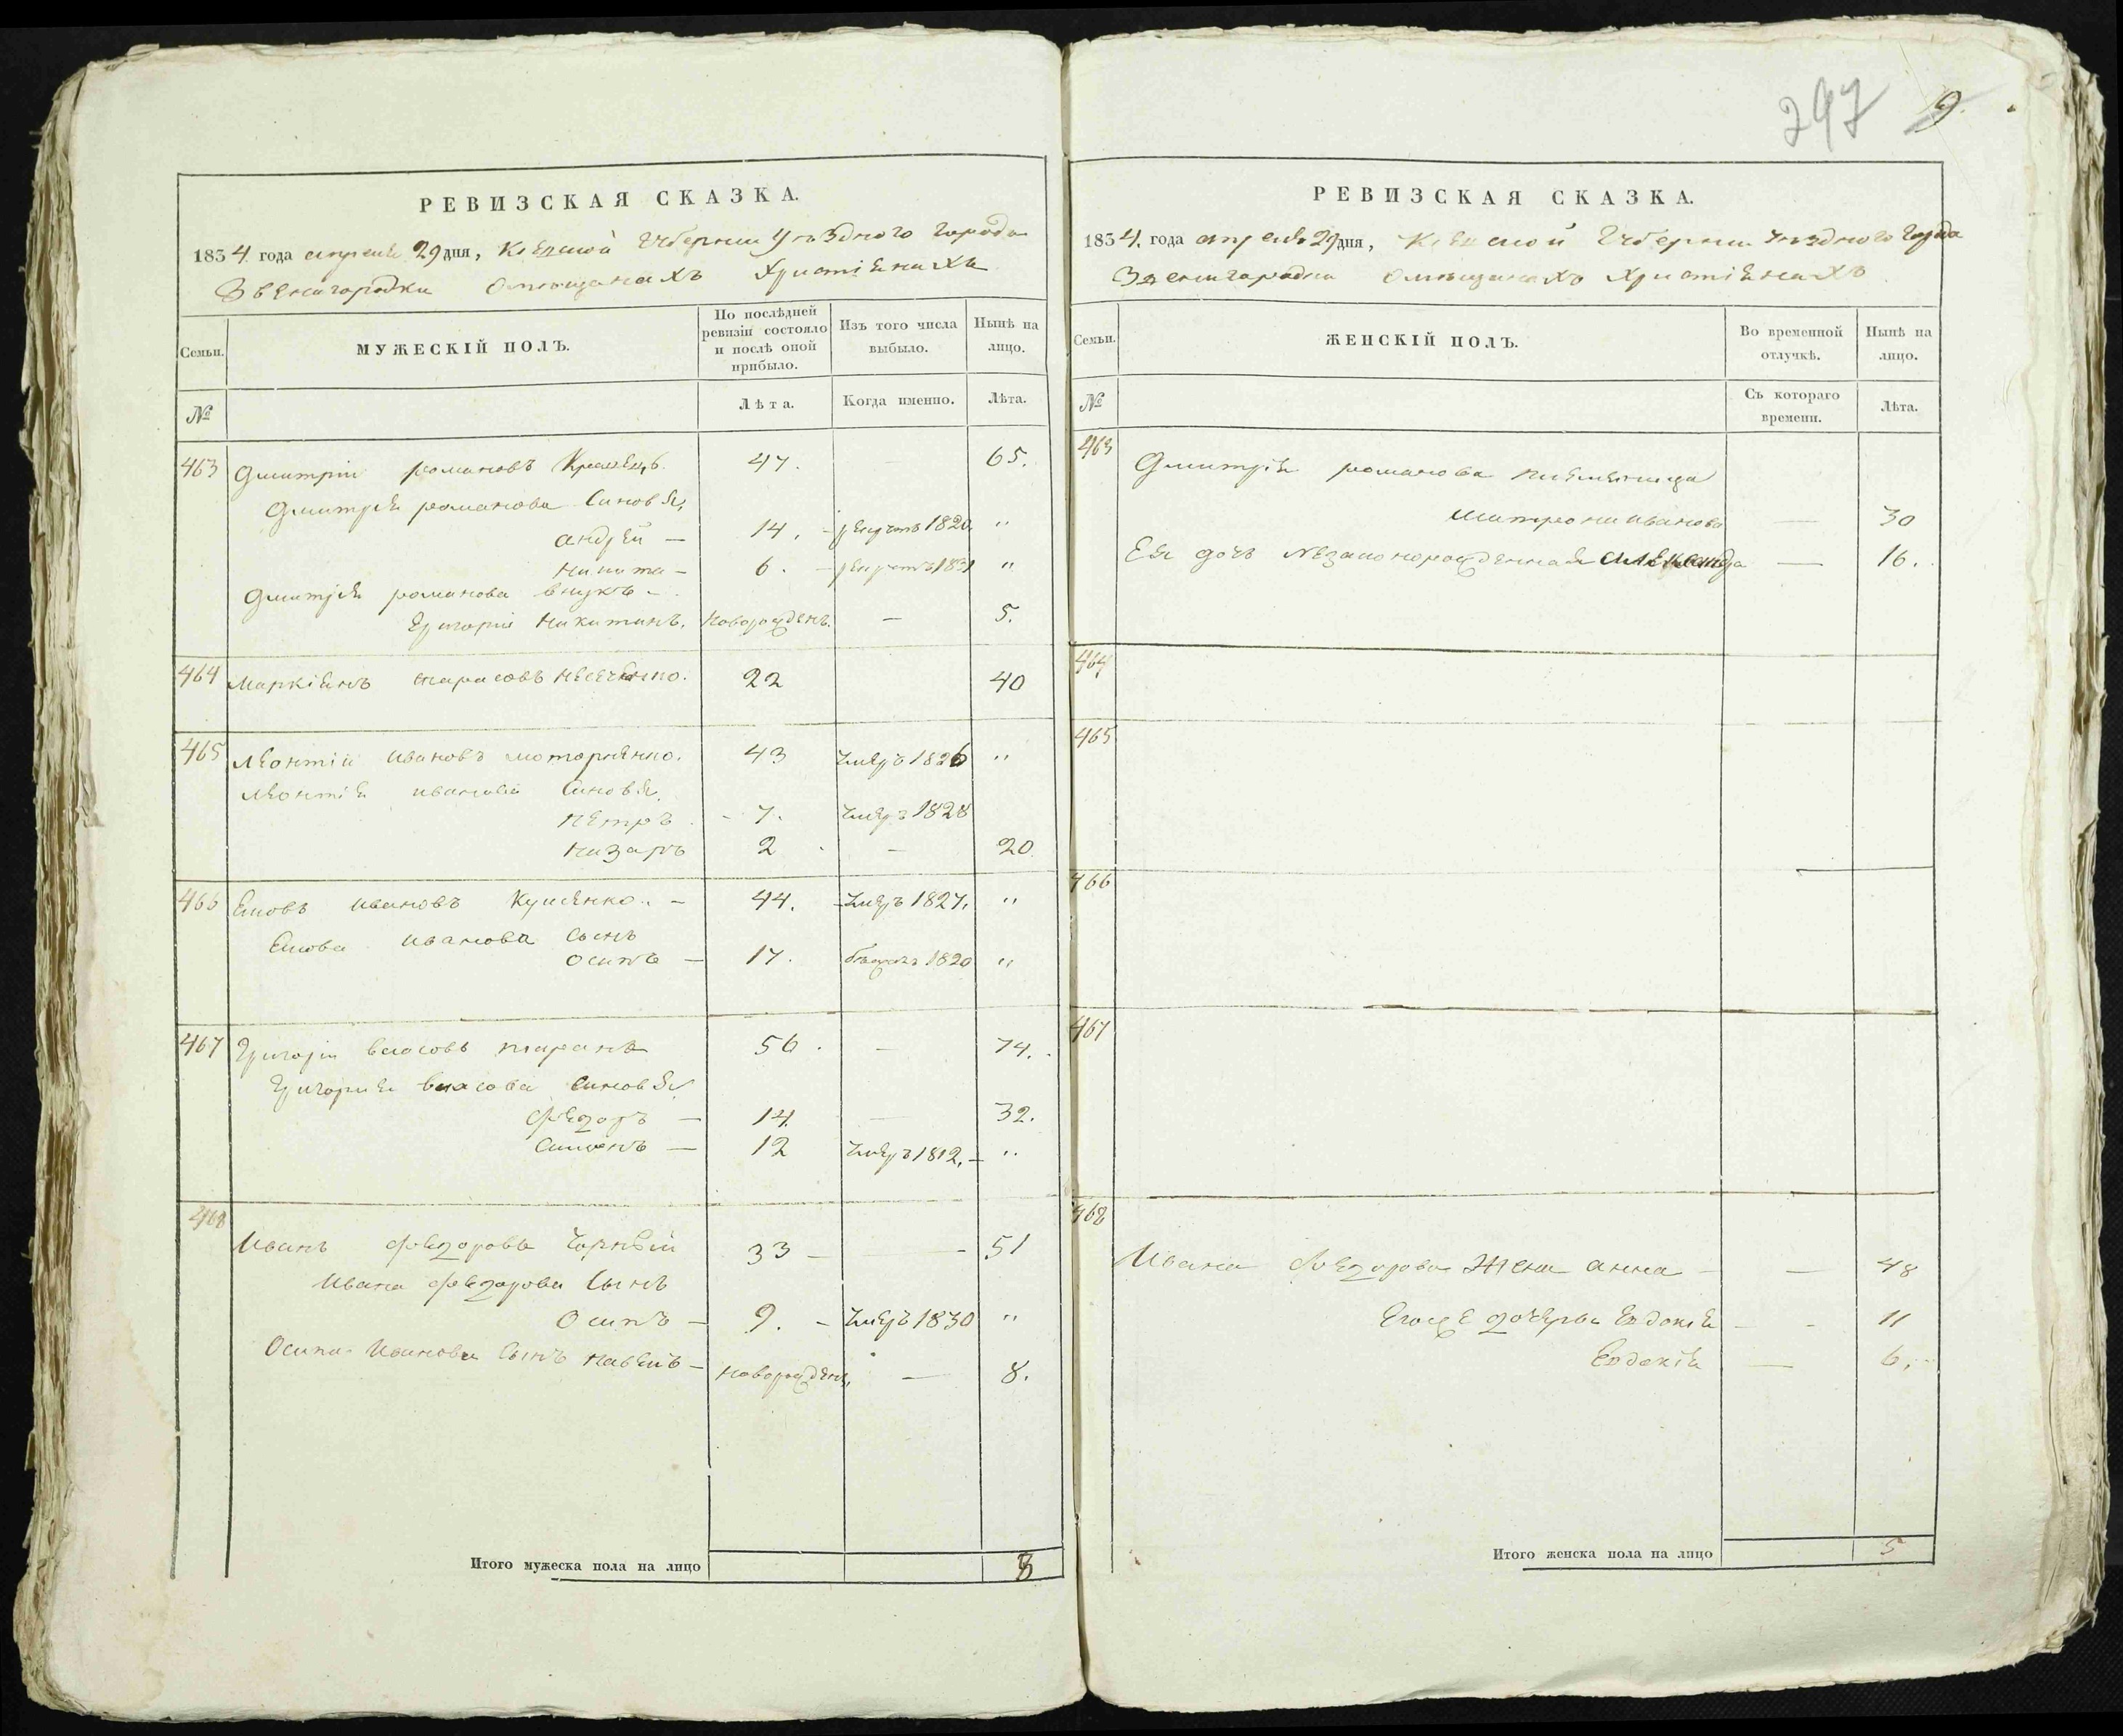 297 9.
РЕВИЗСКАЯ СКАЗКА.
1834. года апреля 29 дня, Кіевской Губерніи Уѣзднаго города
Звенигородки Омѣщанахъ Христіянахъ
По послѣдней ревизіи состояло и послѣ оной прибыло.
Изъ того числа выбыло.
Нынѣ на лицо.
Семьи. МУЖЕСКІЙ ПОЛЪ.
№ Лѣта. Когда именно. Лѣта.
463 Дмитрій романовъ 47. 65.
Дмитрія романова Синовя,
андрей — 14. – рекрутъ 1820. "
никита – 6. – рекрутъ 1831 "
Дмитрія романова внукъ –
Григорій никитинъ. новорожденъ. — 5.
464 Маркіянъ тарасовъ 22 40
465 Леонтій ивановъ моторненко. 43 Умеръ 1826 "
Леонтія иванова Синовя
петръ – 7. Умеръ 1828
назаръ 2 — 20
466 Яковъ ивановъ – 44. – Умеръ 1827. "
Якова иванова сынъ
осипъ — 17. бежалъ 1820 "
467 Григорій власовъ таранъ 56. — 74.
Григорія власова синовя
федоръ — 14. — 32.
Симонъ — 12 Умеръ 1812. – "
468
Иванъ федоровъ Чорный 33 – – 51
Ивана федорова Сынъ
Осипъ – 9. – Умеръ 1830 "
Осипа Иванова Сынъ – новорожденъ. — 8.
Итого мужеска пола на лицо 8
РЕВИЗСКАЯ СКАЗКА.
1834. года апреля 29 дня, Кіевской Губерніи Уѣзднаго города
Звенигородки Омѣщанахъ Христіянахъ
Семьи. ЖЕНСКІЙ ПОЛЪ. Во временной отлучкѣ. Нынѣ на лицо.
№ Съ котораго времени. Лѣта.
463
Дмитрія романова племеница
иванова — 30
Ея дочь незаконорожденная — 16.
464
465
466
467
468
Ивана федорова Жена анна – — 48
Егоже дочерѣ Евдокія – – 11
Евдокія — 6.
Итого женска пола на лицо 5